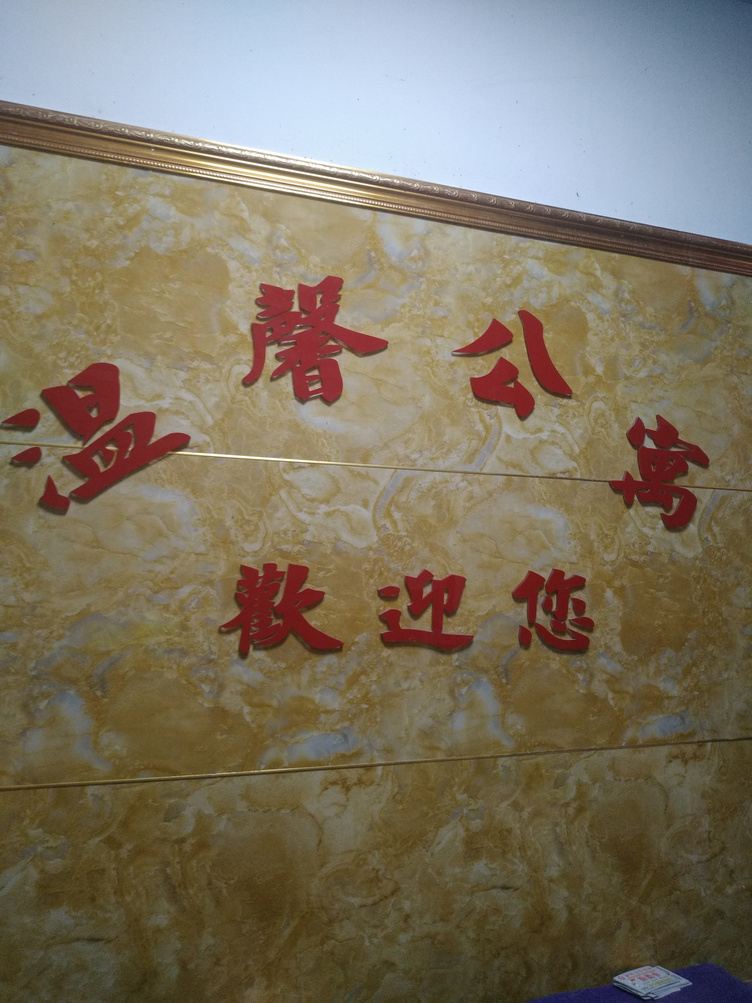 温馨公寓
歡迎您